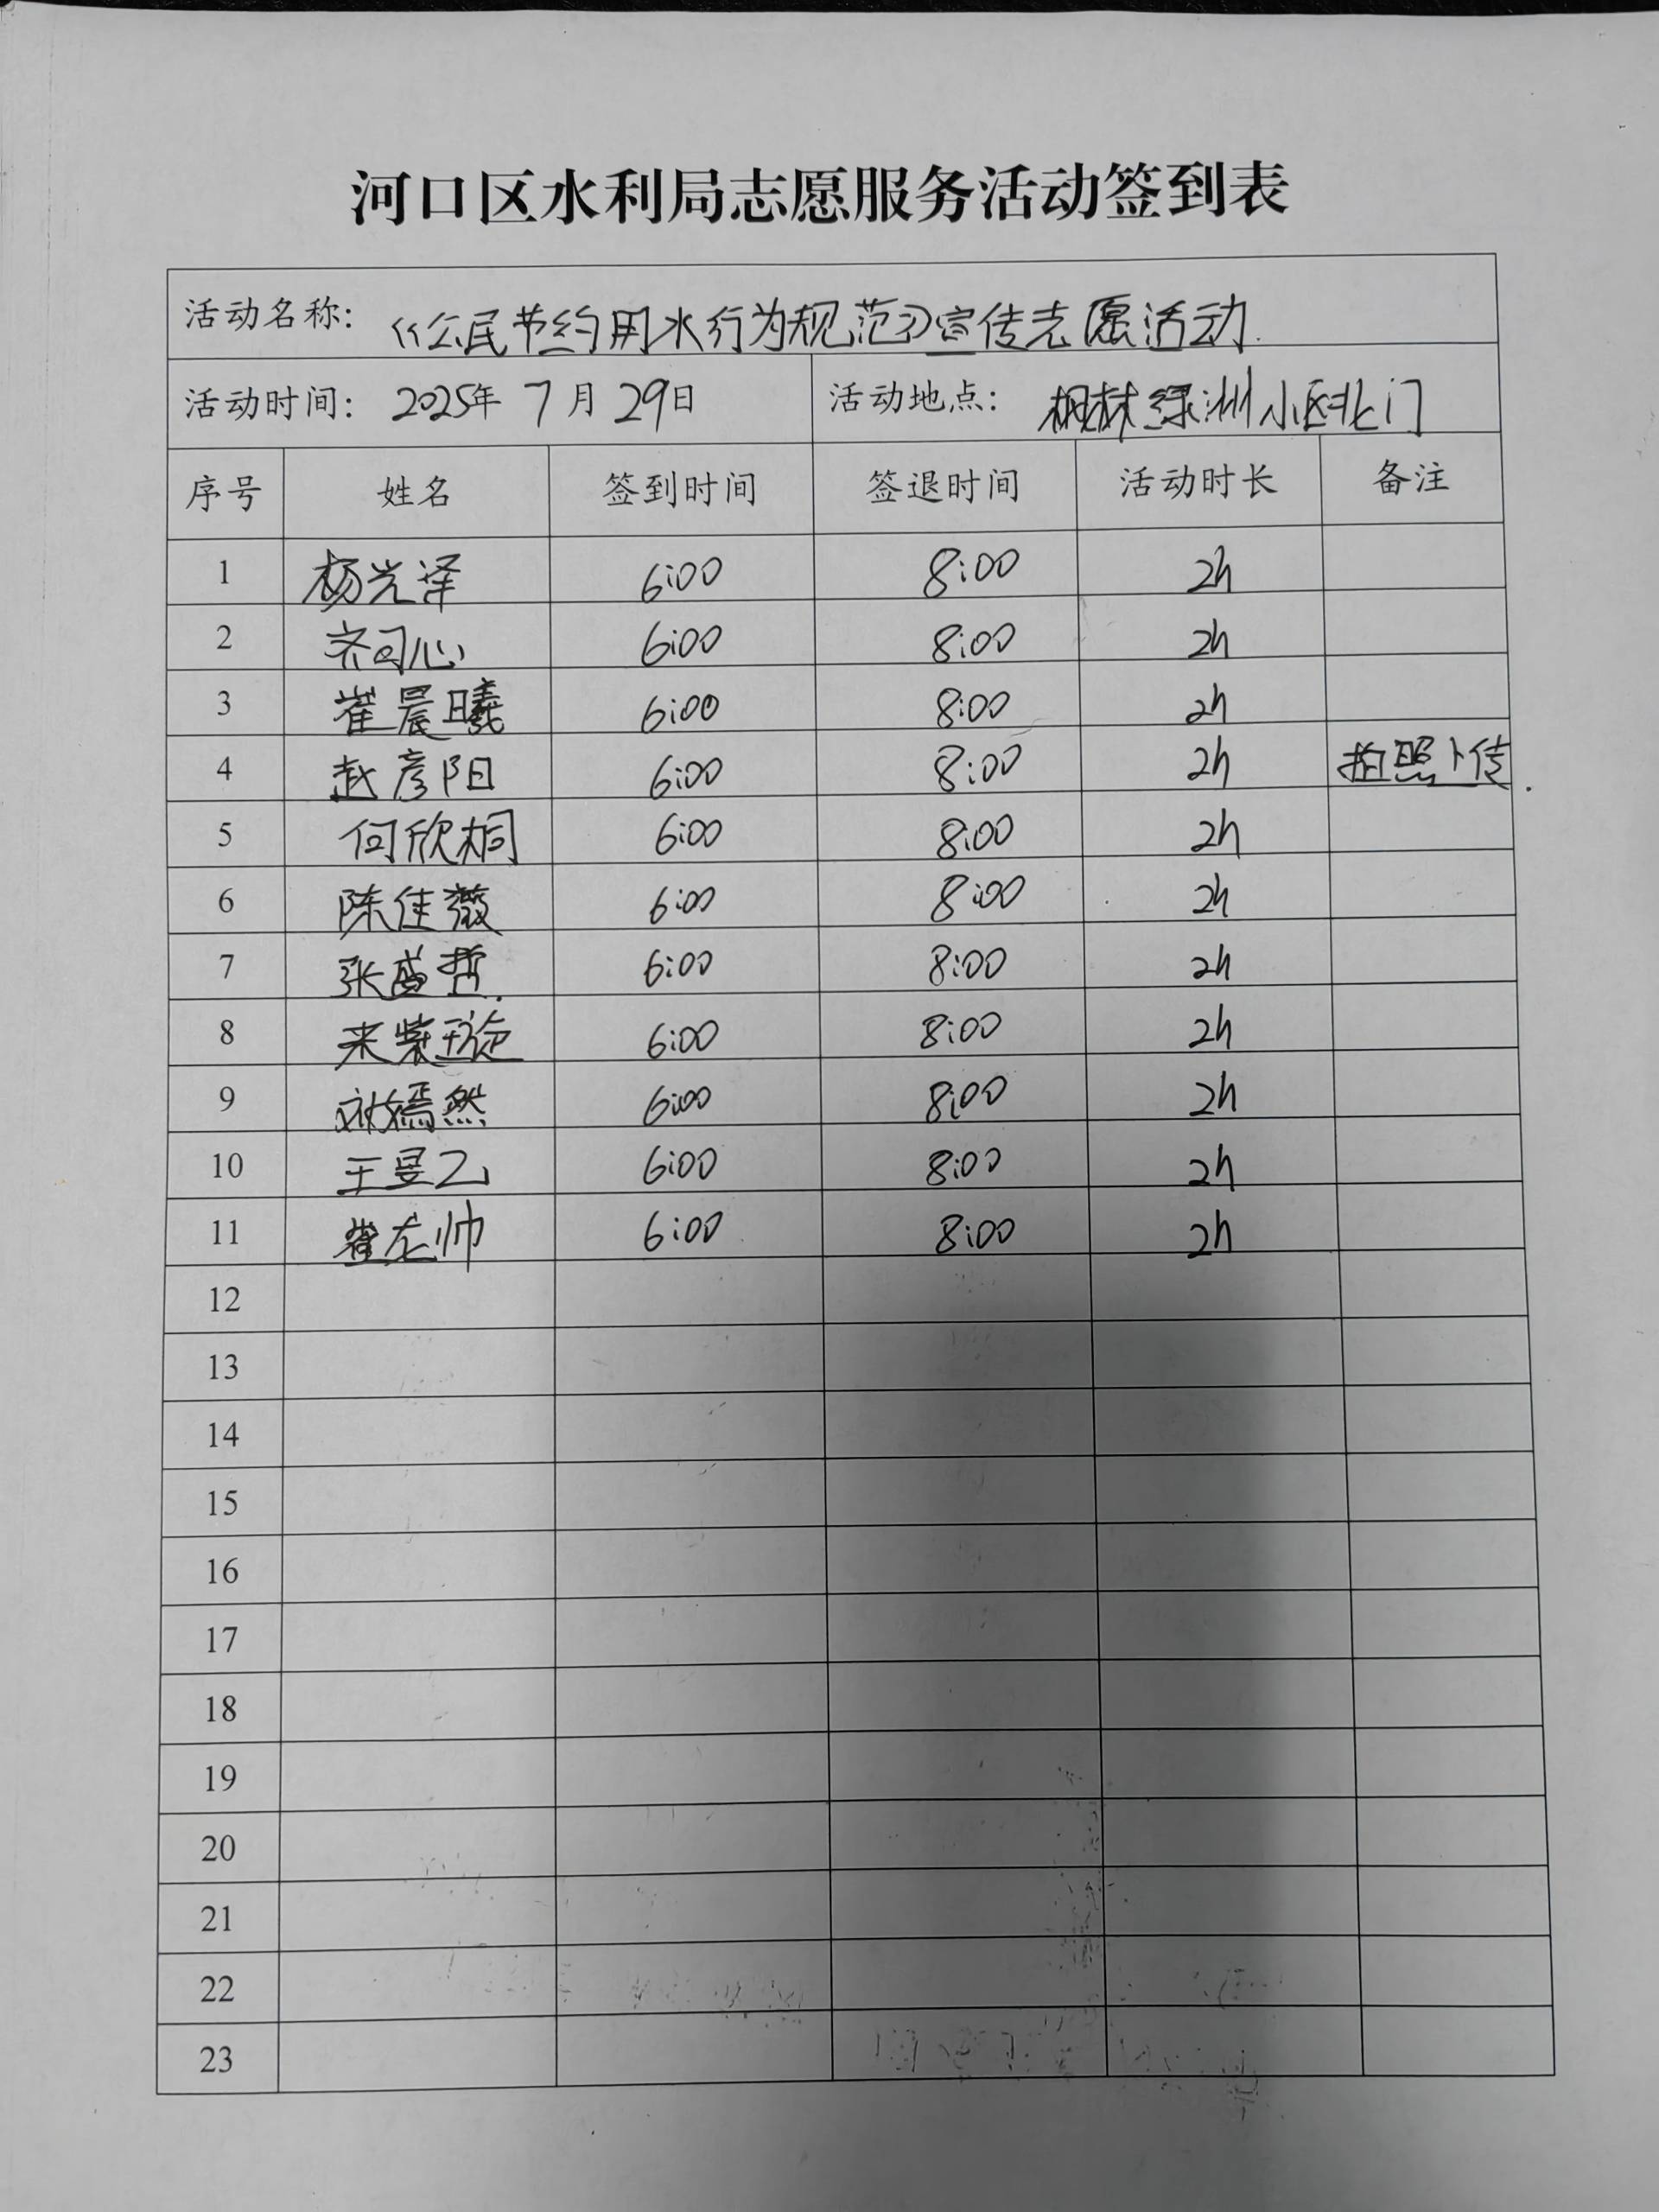 河口区水利局志愿服务活动签到表
活动名称: 《公民节约用水行为规范》宣传志愿活动.
活动时间: 2025年 7月 29日 活动地点: 枫林绿洲小区北门
序号 姓名 签到时间 签退时间 活动时长 备注
1 杨光泽 6:00 8:00 2h
2 齐司心 6:00 8:00 2h
3 崔晨曦 6:00 8:00 2h
4 赵彦阳 6:00 8:00 2h 拍照上传.
5 何欣桐 6:00 8:00 2h
6 陈佳薇 6:00 8:00 2h
7 张盛哲. 6:00 8:00 2h
8 来紫 6:00 8:00 2h
9 刘嫣然 6:00 8:00 2h
10 王昱乙 6:00 8:00 2h
11 帅 6:00 8:00 2h
12
13
14
15
16
17
18
19
20
21
22
23